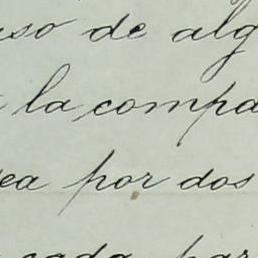 uso de alg
la compa
ea por dos
cada par